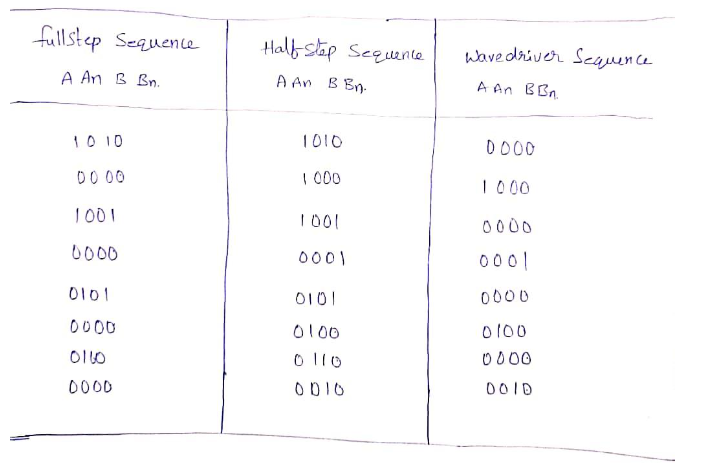 fullstep Sequence Half-Step Sequence Wavedriver Sequence
A An B Bn. A An B Bn. A An B Bn.
1010 1010 0000
0000 1000 1000
1001 1001 0000
0000 0001 0001
0101 0101 0000
0000 0100 0100
0110 0110 0000
0000 0010 0010